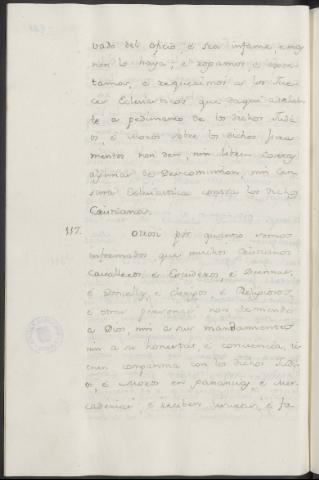 vado del oficio, é sea infame, e mas
non lo haya; é rogamos, é exor-
tamos, é requerimos a los Jue-
ces Eclesiasticos que daqui adelan-
te a pedimento de los dichos Judi-
os, é Moros sobre los dichos jura-
mentos non den, nin libren Cartas
algunas de Descomunion, nin Cen-
sura Eclesiastica contra los dichos
Cristianos.
117. Otrosi por quanto somos
informados que muchos Cristianos
Cavalleros, é Escuderos, é Dueñas,
é Doncellas, é Clerigos é Religiosos,
é otras personas non temiendo
a Dios, nin a sus mandamientos
nin a su honestad, é conciencia, tie-
nen compannia con los dichos Judi-
os, é Moros en ganancias, é Mer-
cadurias, é reciben é fa-